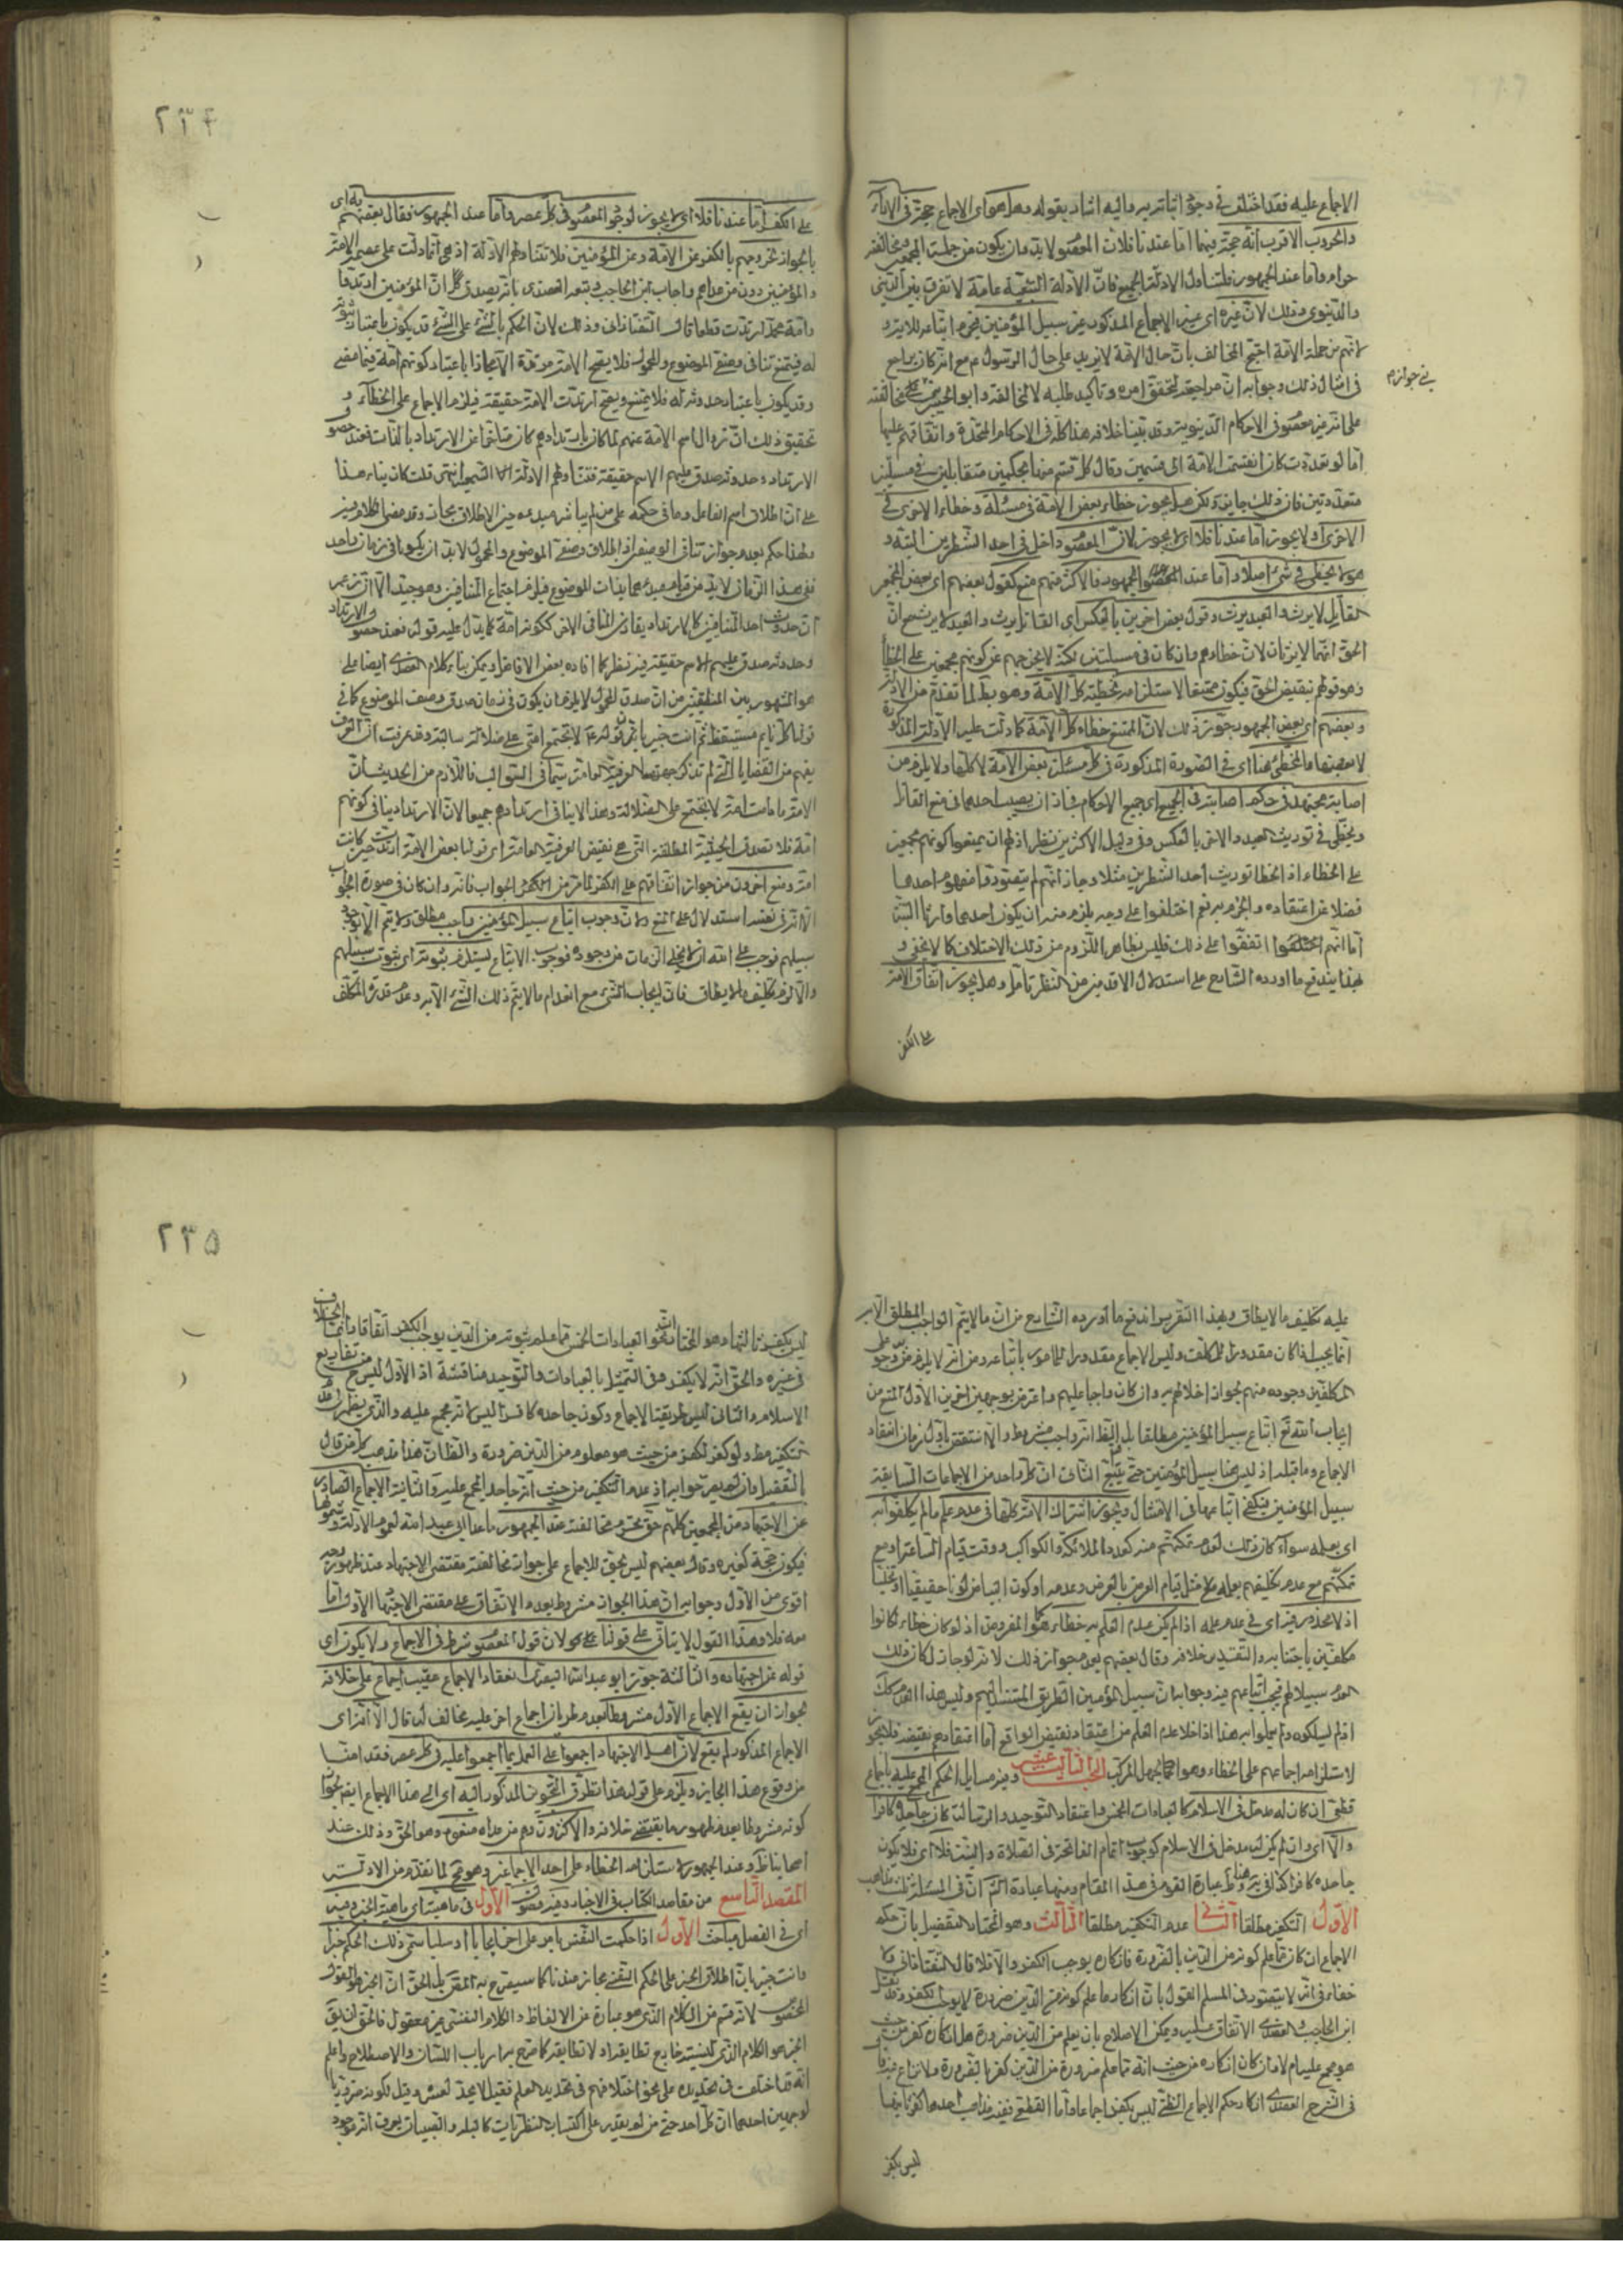 الاجماع عليه فقد اختلف في وجوب اتباعهم به واليه اشار بقوله وهل هو اى الاجماع حجة في الاراء
والحروب الاقرب انه حجة فيهما اما عندنا فلان المعصوم لا بد وان يكون من جملة المجمعين فمخالفته
حرام واما عند الجمهور فلتناول الادلة الجميع فان الادلة السمعية عامة لا تفرق بين الديني
والدنيوى وذلك لان غيره اى غير الاجماع المذكور غير سبيل المؤمنين فيحرم اتباعه للاية و
لانهم من جملة الامة احتج المخالف بان حال الامة لا يزيد على حال الرسول ع مع انه كان يراجع
في جوازه
في امثال ذلك وجوابه ان مراجعته لتحقق امره وتاكيد طلبه لا لمخالفته وابو الحسين مخالفته
على انه غير معصوم في الاحكام الدنيوية وقد بينا خلافه هذا كله في الاحكام المتحدة واتفاقهم عليها
اما لو تعددت كان انقسمت الامة الى قسمين وقال كل قسم منها بحكمين متقابلين في مسئلتين
متعددتين فان ذلك جايز ولكن هل يجوز خطاء بعض الامة في مسئلة وخطاء الاخرى في
الاخرى او لا يجوز اما عندنا فلا اى لا يجوز لان المعصوم داخل في احد الشطرين البتة و
هو لا يخطى في شئ اصلا واما عند الجمهور فالاكثر منهم منع كقول بعضهم اى بعض المجمعين
القاتل لا يرث والعبد يرث وقول بعض اخرين بالعكس اى القاتل يرث والعبد لا يرث مع ان
الحق انهما لا يرثان لان خطاءهم وان كان في مسئلتين لكنه لا يخرجهم عن كونهم مجمعين على الخطأ
وهو قولهم بنقيض الحق فيكون ممتنعا لاستلزامه تخطئة كل الامة وهو بط لما تقدم من الادلة
وبعضهم اى بعض الجمهور جوز ذلك لان الممتنع خطاء كل الامة كما دلت عليه الادلة المذكورة
لا بعضها والمخطئ هنا اى في الصورة المذكورة في كل مسئلة بعض الامة لا كلها ولا يلزم من
اصابة مجتهد في حكم اصابته في الجميع اى جميع الاحكام فجاز ان يصيب احدهما في منع القاتل
ويخطى في توريث العبد والاخر بالعكس وفي دليل الاكثرين نظر اذ لهم ان يمنعوا كونهم مجمعين
على الخطاء اذ الخطا توريث احد الشطرين مثلا وجاز انهم لم يتصوروا مفهوم احدهما
فضلا عن اعتقاده والجزم به نعم اختلفوا على وجه يلزم منه ان يكون احدهما وارثا البتة
اما انهم اتفقوا على ذلك فليس بظاهر اللزوم من ذلك الاختلاف كما لا يخفى و
بهذا يندفع ما اورده الشارح على استدلال الاقدمين من النظر تامل وهل يجوز اتفاق الامة
على الكفر
٢٣٤
على الكفر اما عندنا فلا اى لا يجوز لوجوب المعصوم في كل عصر واما عند الجمهور فقال بعضهم به اى
بالجواز لخروجهم بالكفر عن الامة وعن المؤمنين فلا تتناولهم الادلة اذ هي انما دلت على عصمة الامة
والمؤمنين دون من عداهم واجاب ابن الحاجب وتبعه العضدى بانه يصدق ان المؤمنين ارتدوا
وامة محمد ارتدت قطعا قال التفتازانى وذلك لان الحكم بالشئ على الشئ قد يكون باعتبار ثبوته
له فيمتنع تنافى وصفى الموضوع والمحمول فلا يصح الامة مرتدة الا مجازا باعتبار كونهم امة فيما مضى
وقد يكون باعتبار حدوثه له فلا يمتنع ويصح ارتدت الامة حقيقة فيلزم الاجماع على الخطاء و
تحقيق ذلك ان زوال اسم الامة عنهم لما كان بارتدادهم كان متاخرا عن الارتداد بالذات فعند حصول
الارتداد وحدوثه صدق عليهم الاسم حقيقة فتتناولهم الادلة السمعية انتهى قلت كان بناء هذا
على ان اطلاق اسم الفاعل وما في حكمه على من لم يباشر مبدءه حين الاطلاق مجاز وقد مضى الكلام فيه
ولهذا حكم بعدم جواز تنافى الوصفين اذ اطلاق وصفى الموضوع والمحمول لا بد ان يكونا في زمان واحد
ففى هذا الزمان لا بد من قيام مبدءهما بذات الموضوع فيلزم اجتماع المتنافيين وهو جيد الا ان زعمه
ان حدوث احد المتنافيين كالارتداد يقارن المنافى الاخر ككونه امة كما يدل عليه قوله فعند حصول الارتداد
وحدوثه صدق عليهم الاسم حقيقة فيه نظر كما افاده بعض الافاضل ويمكن بناء كلام العضدى ايضا على
هو المشهور بين المنطقيين من ان صدق المحمول لا يلزم ان يكون في زمان صدق وصف الموضوع كما في
قولنا كل نايم مستيقظ ثم انت خبير بان قوله ع لا تجتمع امتى على ضلالة سالبة وقد عرفت ان العرف
يفهم من القضايا التى لم تذكر جهتها العرفية العامة سيما في السوالب فاللازم من الحديث ان
الامة ما دامت امة لا تجتمع على الضلالة وهذا لا ينافى ارتدادهم جميعا لان الارتداد ينافى كونهم
امة فلا تصدق الحينية المطلقة التى هي نقيض العرفية العامة اى قولنا بعض الامة ارتدت حين كانت
امة ومنع اخرون من جواز اتفاقهم على الكفر لما مر من الجواب فانه وان كان في صورة الجواب
الا انه في نفسه استدلال على المنع ولان وجوب اتباع سبيل المؤمنين واجب مطلق ولا يتم الا بوجود
سبيلهم فوجب على الله ان لا يخلى الزمان من وجوده فوجوب الاتباع يستلزم ثبوته اى ثبوت سبيلهم
والا لزم تكليف ما لا يطاق فان ايجاب الشئ مع انعدام ما لا يتم ذلك الشئ الا به وعدم قدرة المكلف
عليه تكليف ما لا يطاق وبهذا التقرير اندفع ما اورده الشارح من ان ما لا يتم الواجب المطلق الا به
انما يجب اذا كان مقدورا للمكلف وليس الاجماع مقدورا للمامور باتباعه ومن انه لا يلزم من وجوبه على
المكلفين وجوده منهم لجواز اخلالهم به وان كان واجبا عليهم واعترض بوجهين اخرين الاول المنع من
ايجاب الله تع اتباع سبيل المؤمنين مطلقا بل الظ انه واجب مشروط والا انتقض باول زمان انعقاد
الاجماع وما قبله اذ ليس هنا سبيل المؤمنين حتى يتبع الثانى ان كل واحد من الاجماعات السابقة
سبيل المؤمنين فيكفى اتباعها في الامتثال ويجوز اشتراك الامة كلها في عدم علم ما لم يكلفوا به
اى بعلمه سواء كان ذلك لعدم تمكنهم منه كعدد الملائكة والكواكب ووقت قيام الساعة او مع
تمكنهم مع عدم تكليفهم بعلمه مثل قيام العرض بالعرض وعدمه او كون البياض لونا حقيقيا او تخيليا
اذ لا محذور فيه اى في عدم علمه اذا لم يكن عدم العلم به خطاء كما هو المفروض اذ لو كان خطاء لكانوا
مكلفين باجتنابه والتقدير خلافه وقال بعضهم بعدم جواز ذلك لانه لو جاز لكان ذلك
العدم سبيلا لهم فيجب اتباعهم فيه وجوابه ان سبيل المؤمنين الطريق المنتسب اليهم وليس هذا العدم كك
اذ لم يسلكوه ولم يعملوا به هذا اذا خلا عدم العلم من اعتقاد نقيض الواقع اما اعتقادهم نقيضه فلا يجوز
لاستلزامه اجماعهم على الخطاء وهو الجهل المركب البحث الثالث عشر وفيه مسايل الحكم المجمع عليه باجماع
قطعى ان كان له مدخل في الاسلام كالعبادات الخمس واعتقاد التوحيد والرسالة كان جاحده كافرا
والا اى وان لم يكن له مدخل في الاسلام كوجوب اتمام الفاتحة في الصلاة والبيت فلا اى فلا يكون
جاحده كافرا كذا في عبارة القوم في هذا المقام ومنها عبارة ان في المسئلة ثلث مذاهب
الاول التكفير مطلقا الثانى عدم التكفير مطلقا الثالث وهو المختار التفصيل بان حكم
الاجماع ان كان مما علم كونه من الدين بالضرورة فانكاره يوجب الكفر والا فلا قال التفتازانى ولا
خفاء في انه لا يتصور في المسلم القول بان انكار ما علم كونه من الدين ضرورة لا يوجب الكفر
ابن الحاجب والعضدى الاتفاق عليه ويمكن الاصلاح بان يعلم من الدين ضرورة هل انكاره كفر من حيث
هو مجمع عليه ام لا وان كان انكاره من حيث انه مما علم ضرورة من الدين كفر بالضرورة ولا نزاع فيه قال
في الشرح العضدى انكار حكم الاجماع الظنى ليس بكفر اجماعا واما القطعى ففيه مذاهب احدها كفر ثانيها
ليس بكفر
٢٣٥
ليس بكفر ثالثها وهو المختار ان نحو العبادات الخمس مما علم ثبوته من الدين يوجب الكفر اتفاقا وانما الخلاف
في غيره والحق انه لا يكفر وفي التمثيل بالعبادات والتوحيد مناقشة اذ الاول ليس من تفاريع
الاسلام والثانى ليس طريقه الاجماع وكون جاحده كافرا ليس لانه مجمع عليه والذى يظهر
تكفير مط ولو كفر لكفر من حيث هو معلوم من الدين ضرورة والظ ان هذا مذهب كل من قال
بالتفصيل وان لم يصرحوا به اذ عدم التكفير من حيث انه جاحد لمجمع عليه والثانية الاجماع الصادر
عن الاجتهاد من المجمعين كلهم حق تحرم مخالفته عند الجمهور ما عدا ابى عبد الله لعموم الادلة وشمولها
فيكون حجة كغيره وقال بعضهم ليس بحق للاجماع على جواز مخالفة مقتضى الاجتهاد عند ظهور وجه
اقوى من الاول وجوابه ان هذا الجواز مشروط بعدم الاتفاق على مقتضى الاجتهاد الاول اما
معه فلا وهذا القول لا يتاتى على قولنا لان قول المعصوم شرط في الاجماع ولا يكون اى
قوله عن اجتهاده والثالثة جوز ابو عبد الله البصرى انعقاد الاجماع عقيب اجماع على خلافه
لجواز ان يقع الاجماع الاول مشروطا بعدم طريان اجماع اخر عليه مخالف له قال الا انه اى
الاجماع المذكور لم يقع لان اهل الاجتهاد اجمعوا على العمل بما اجمعوا عليه في كل عصر فقد امنا
من وقوع هذا الجايز ويلزم على قوله هذا تطرق التجويز المذكور اليه اى الى هذا الاجماع ايضا لجواز
كونه مشروطا بعدم ظهور ما يقتضى خلافه والاكثرون ومنهم من عداه منعوه وهو الحق وذلك عند
اصحابنا ظ وعند الجمهور لاستلزامه الخطاء على احد الاجماعين وهو مح لما تقدم من الادلة
المقصد التاسع من مقاصد الكتاب في الاخبار وفيه فصول الاول في ماهيته اى ماهية الخبر وفيه
اى في الفصل مباحث الاول اذا حكمت النفس بامر على اخر ايجابا او سلبا سمى ذلك الحكم خبرا
وانت خبير بان اطلاق الخبر على الحكم النفسى مجاز عندنا كما سيصرح به المص بل الحق ان الخبر هو القول
المخصوص لانه قسم من الكلام الذى هو عبارة عن الالفاظ والكلام النفسى غير معقول فالحق ان يق
الخبر هو الكلام الذى لنسبته خارج تطابقه او لا تطابقه كما صرح به ارباب اللسان والاصطلاح واعلم
انه قد اختلف في تحديده على نحو اختلافهم في تحديد العلم فقيل لا يحد لعسره وقيل لكونه ضروريا
لوجهين احدهما ان كل احد حتى من لم يقدر على اكتساب النظريات كالبله والصبيان يعرف انه موجود